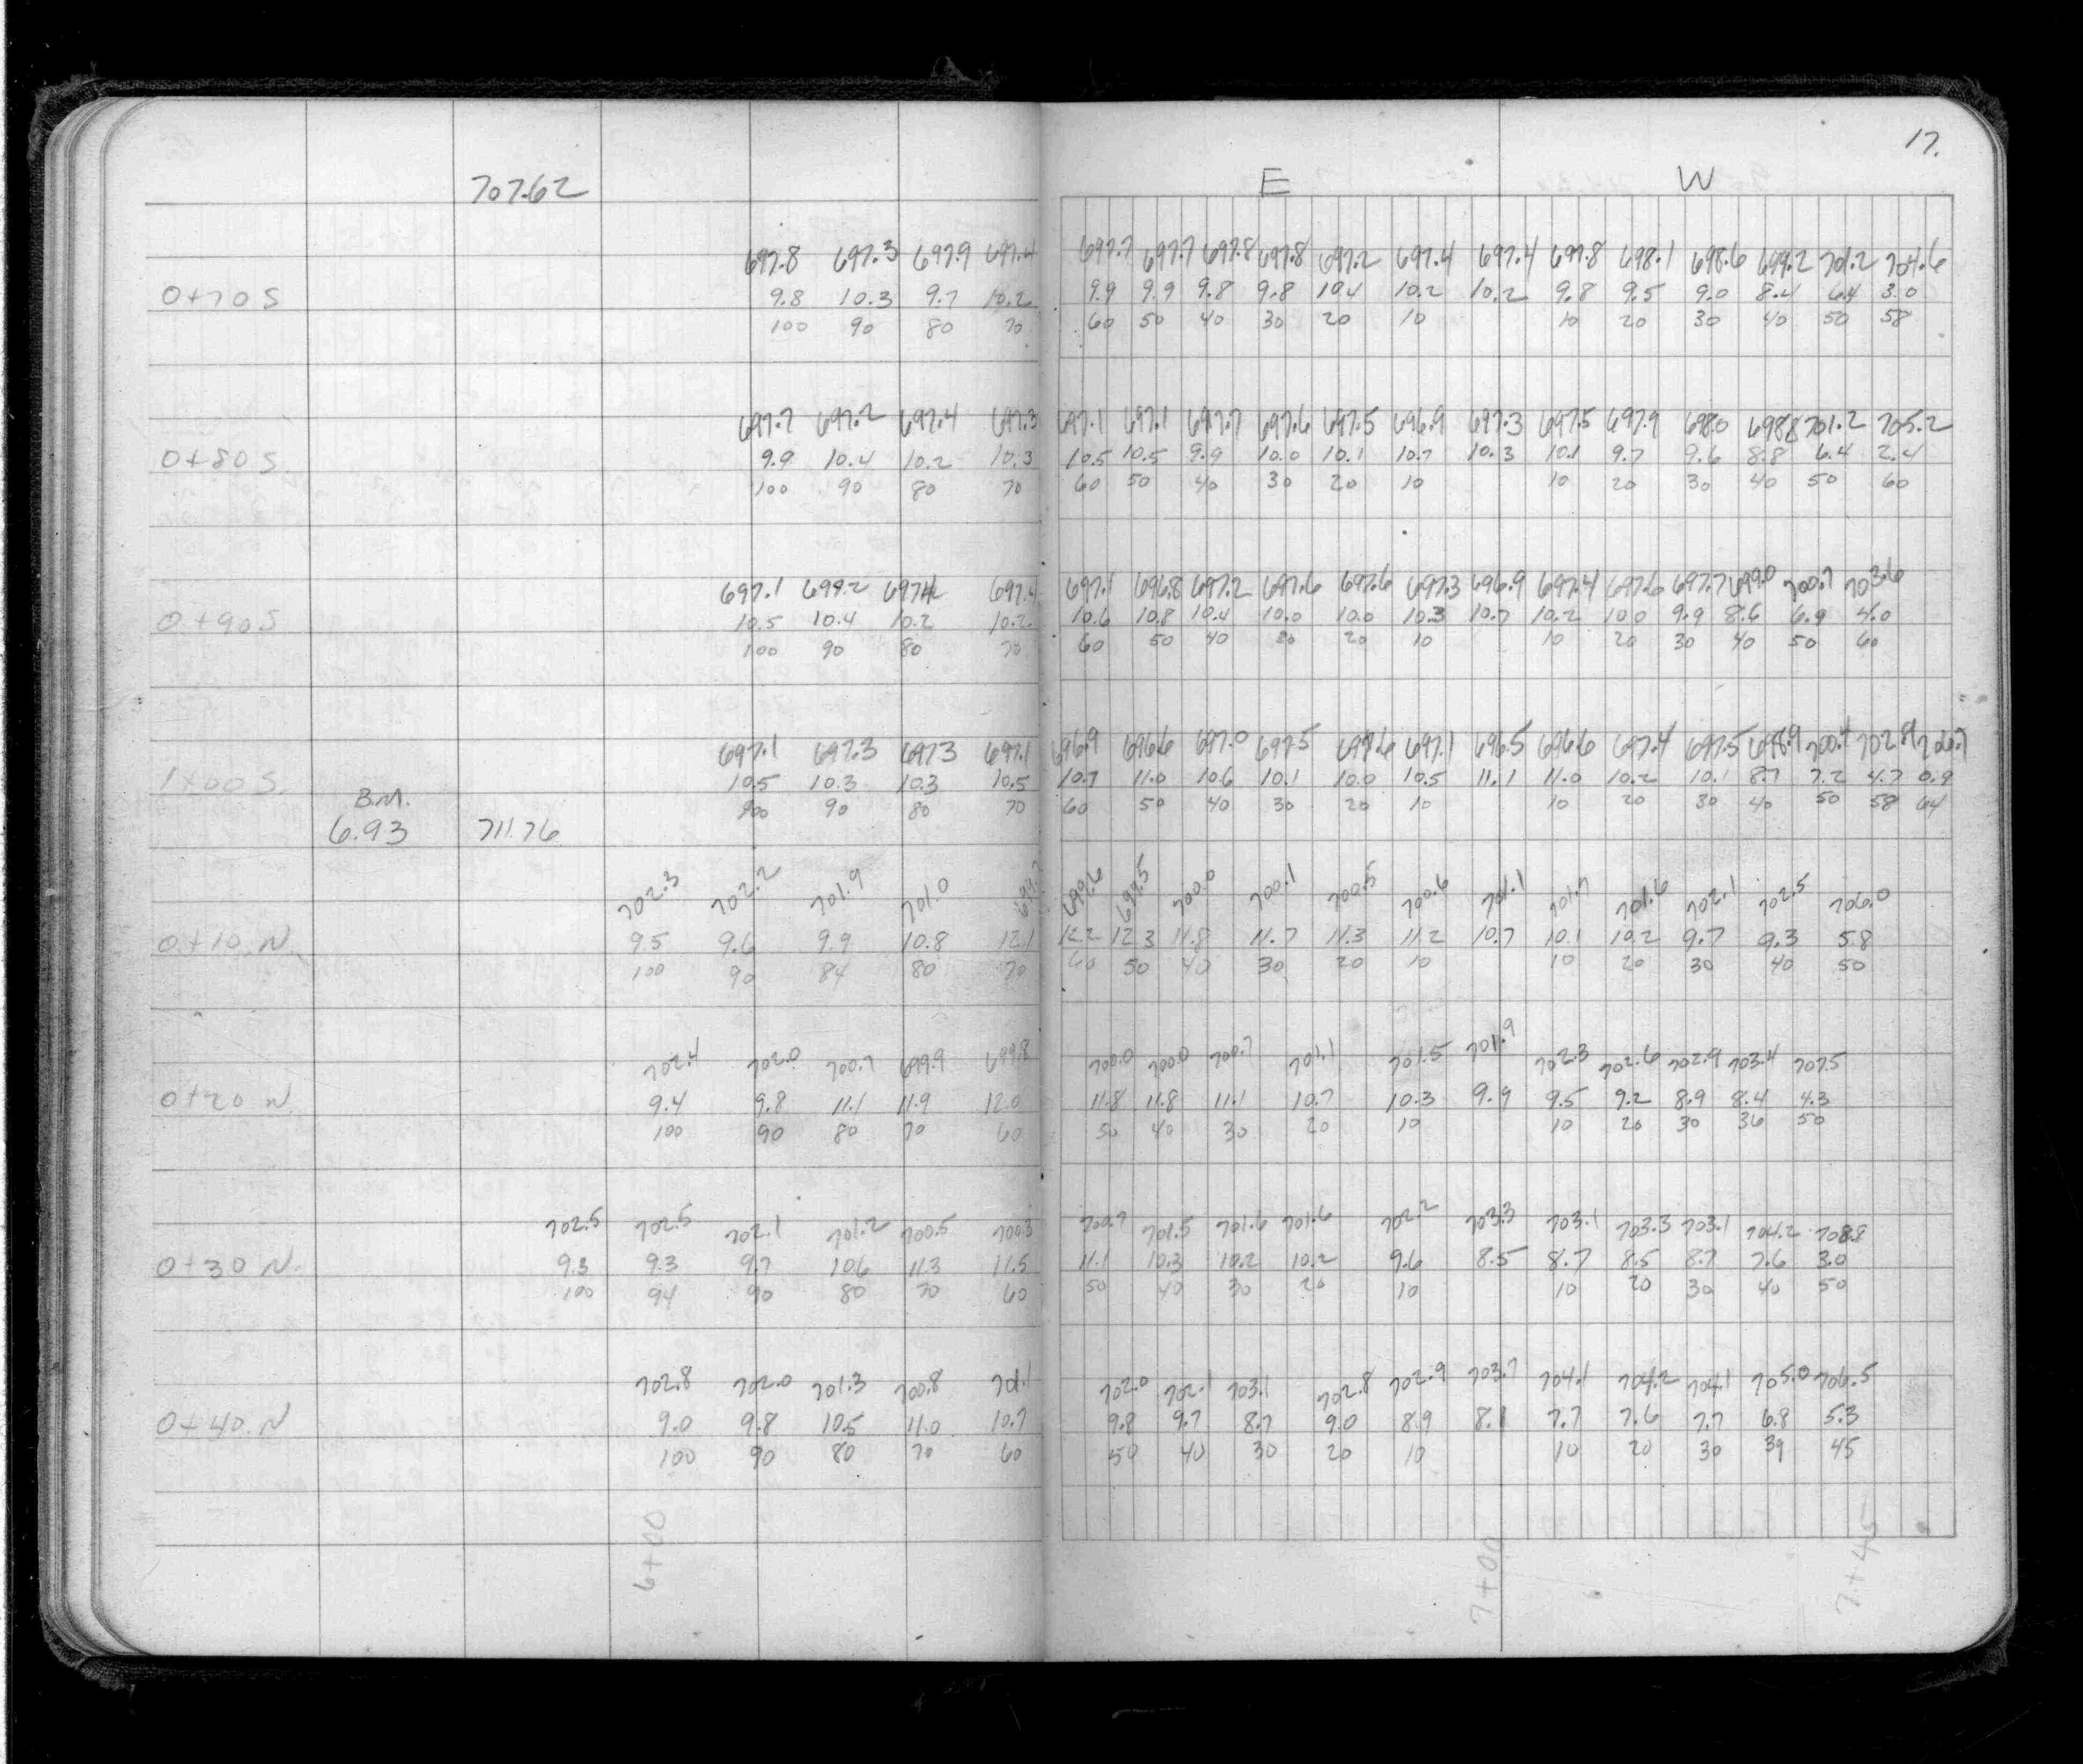 17.
707.62 E W
697.8 697.3 697.9 697.4 697.7 697.7 697.8 697.8 697.2 697.4 697.4 697.8 698.1 698.6 699.2 701.2 704.6
0+70 S 9.8 10.3 9.7 10.2 9.9 9.9 9.8 9.8 10.4 10.2 10.2 9.8 9.5 9.0 8.4 6.4 3.0
100 90 80 70 60 50 40 30 20 10 10 20 30 40 50 58
697.7 697.2 697.4 697.3 697.1 697.1 697.7 697.6 697.5 696.9 697.3 697.5 697.9 698.0 698.8 701.2 705.2
0+80 S. 9.9 10.4 10.2 10.3 10.5 10.5 9.9 10.0 10.1 10.7 10.3 10.1 9.7 9.6 8.8 6.4 2.4
100 90 80 70 60 50 40 30 20 10 10 20 30 40 50 60
697.1 697.2 697.4 697.4 697.1 696.8 697.2 697.6 697.6 697.3 696.9 697.4 697.6 697.7 699.0 700.7 703.6
0+90 S 10.5 10.4 10.2 10.2 10.6 10.8 10.4 10.0 10.0 10.3 10.7 10.2 10.0 9.9 8.6 6.9 4.0
100 90 80 70 60 50 40 30 20 10 10 20 30 40 50 60
697.1 697.3 697.3 697.1 696.9 696.6 697.0 697.5 697.6 697.1 696.5 696.6 697.4 697.5 698.9 700.4 702.9 706.7
1+00 S. 10.5 10.3 10.3 10.5 10.7 11.0 10.6 10.1 10.0 10.5 11.1 11.0 10.2 10.1 8.7 7.2 4.7 0.9
B.M. 100 90 80 70 60 50 40 30 20 10 10 20 30 40 50 58 64
6.93 711.76
702.3 702.2 701.9 701.0 699.7 699.6 699.5 700.0 700.1 700.5 700.6 701.1 701.7 701.6 702.1 702.5 706.0
0+10 N. 9.5 9.6 9.9 10.8 12.1 12.2 12.3 11.8 11.7 11.3 11.2 10.7 10.1 10.2 9.7 9.3 5.8
100 90 84 80 70 60 50 40 30 20 10 10 20 30 40 50
702.4 702.0 700.7 699.9 699.8 700.0 700.0 700.7 701.1 701.5 701.9 702.3 702.6 702.9 703.4 707.5
0+20 N. 9.4 9.8 11.1 11.9 12.0 11.8 11.8 11.1 10.7 10.3 9.9 9.5 9.2 8.9 8.4 4.3
100 90 80 70 60 50 40 30 20 10 10 20 30 36 50
702.5 702.5 702.1 701.2 700.5 700.3 700.7 701.5 701.6 701.6 702.2 703.3 703.1 703.3 703.1 704.2 708.8
0+30 N. 9.3 9.3 9.7 10.6 11.3 11.5 11.1 10.3 10.2 10.2 9.6 8.5 8.7 8.5 8.7 7.6 3.0
100 94 90 80 70 60 50 40 30 20 10 10 20 30 40 50
702.8 702.0 701.3 700.8 701.1 702.0 702.1 703.1 702.8 702.9 703.7 704.1 704.2 704.1 705.0 706.5
0+40 N 9.0 9.8 10.5 11.0 10.7 9.8 9.7 8.7 9.0 8.9 8.1 7.7 7.6 7.7 6.8 5.3
100 90 80 70 60 50 40 30 20 10 10 20 30 39 45
6+00 7+00 7+45